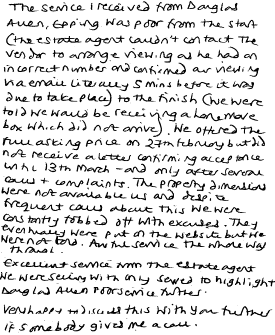 The service I received from Douglas
Allen, Epping was poor from the start
(the estate agent couldn't contact the
vendor to arrange viewing as he had an
incorrect number and confirmed our viewing
via email literally 5 mins before it was
due to take place) to the finish (we were
told we would be receiving a home move
box which did not arrive). We offered the
full asking price on 27th February but did
not receive a letter confirming acceptance
until 13th March - and only after several
calls + complaints. The property dimensions
were not available us and despite
frequent calls about this we were
constantly fobbed off with excuses. They
eventually were put on the website but we
were not told. Awful service the whole way
through.
Excellent service from the estate agent
we were selling with only served to highlight
Douglas Allen poor service further.
Very happy to discuss this with you further
if somebody gives me a call.